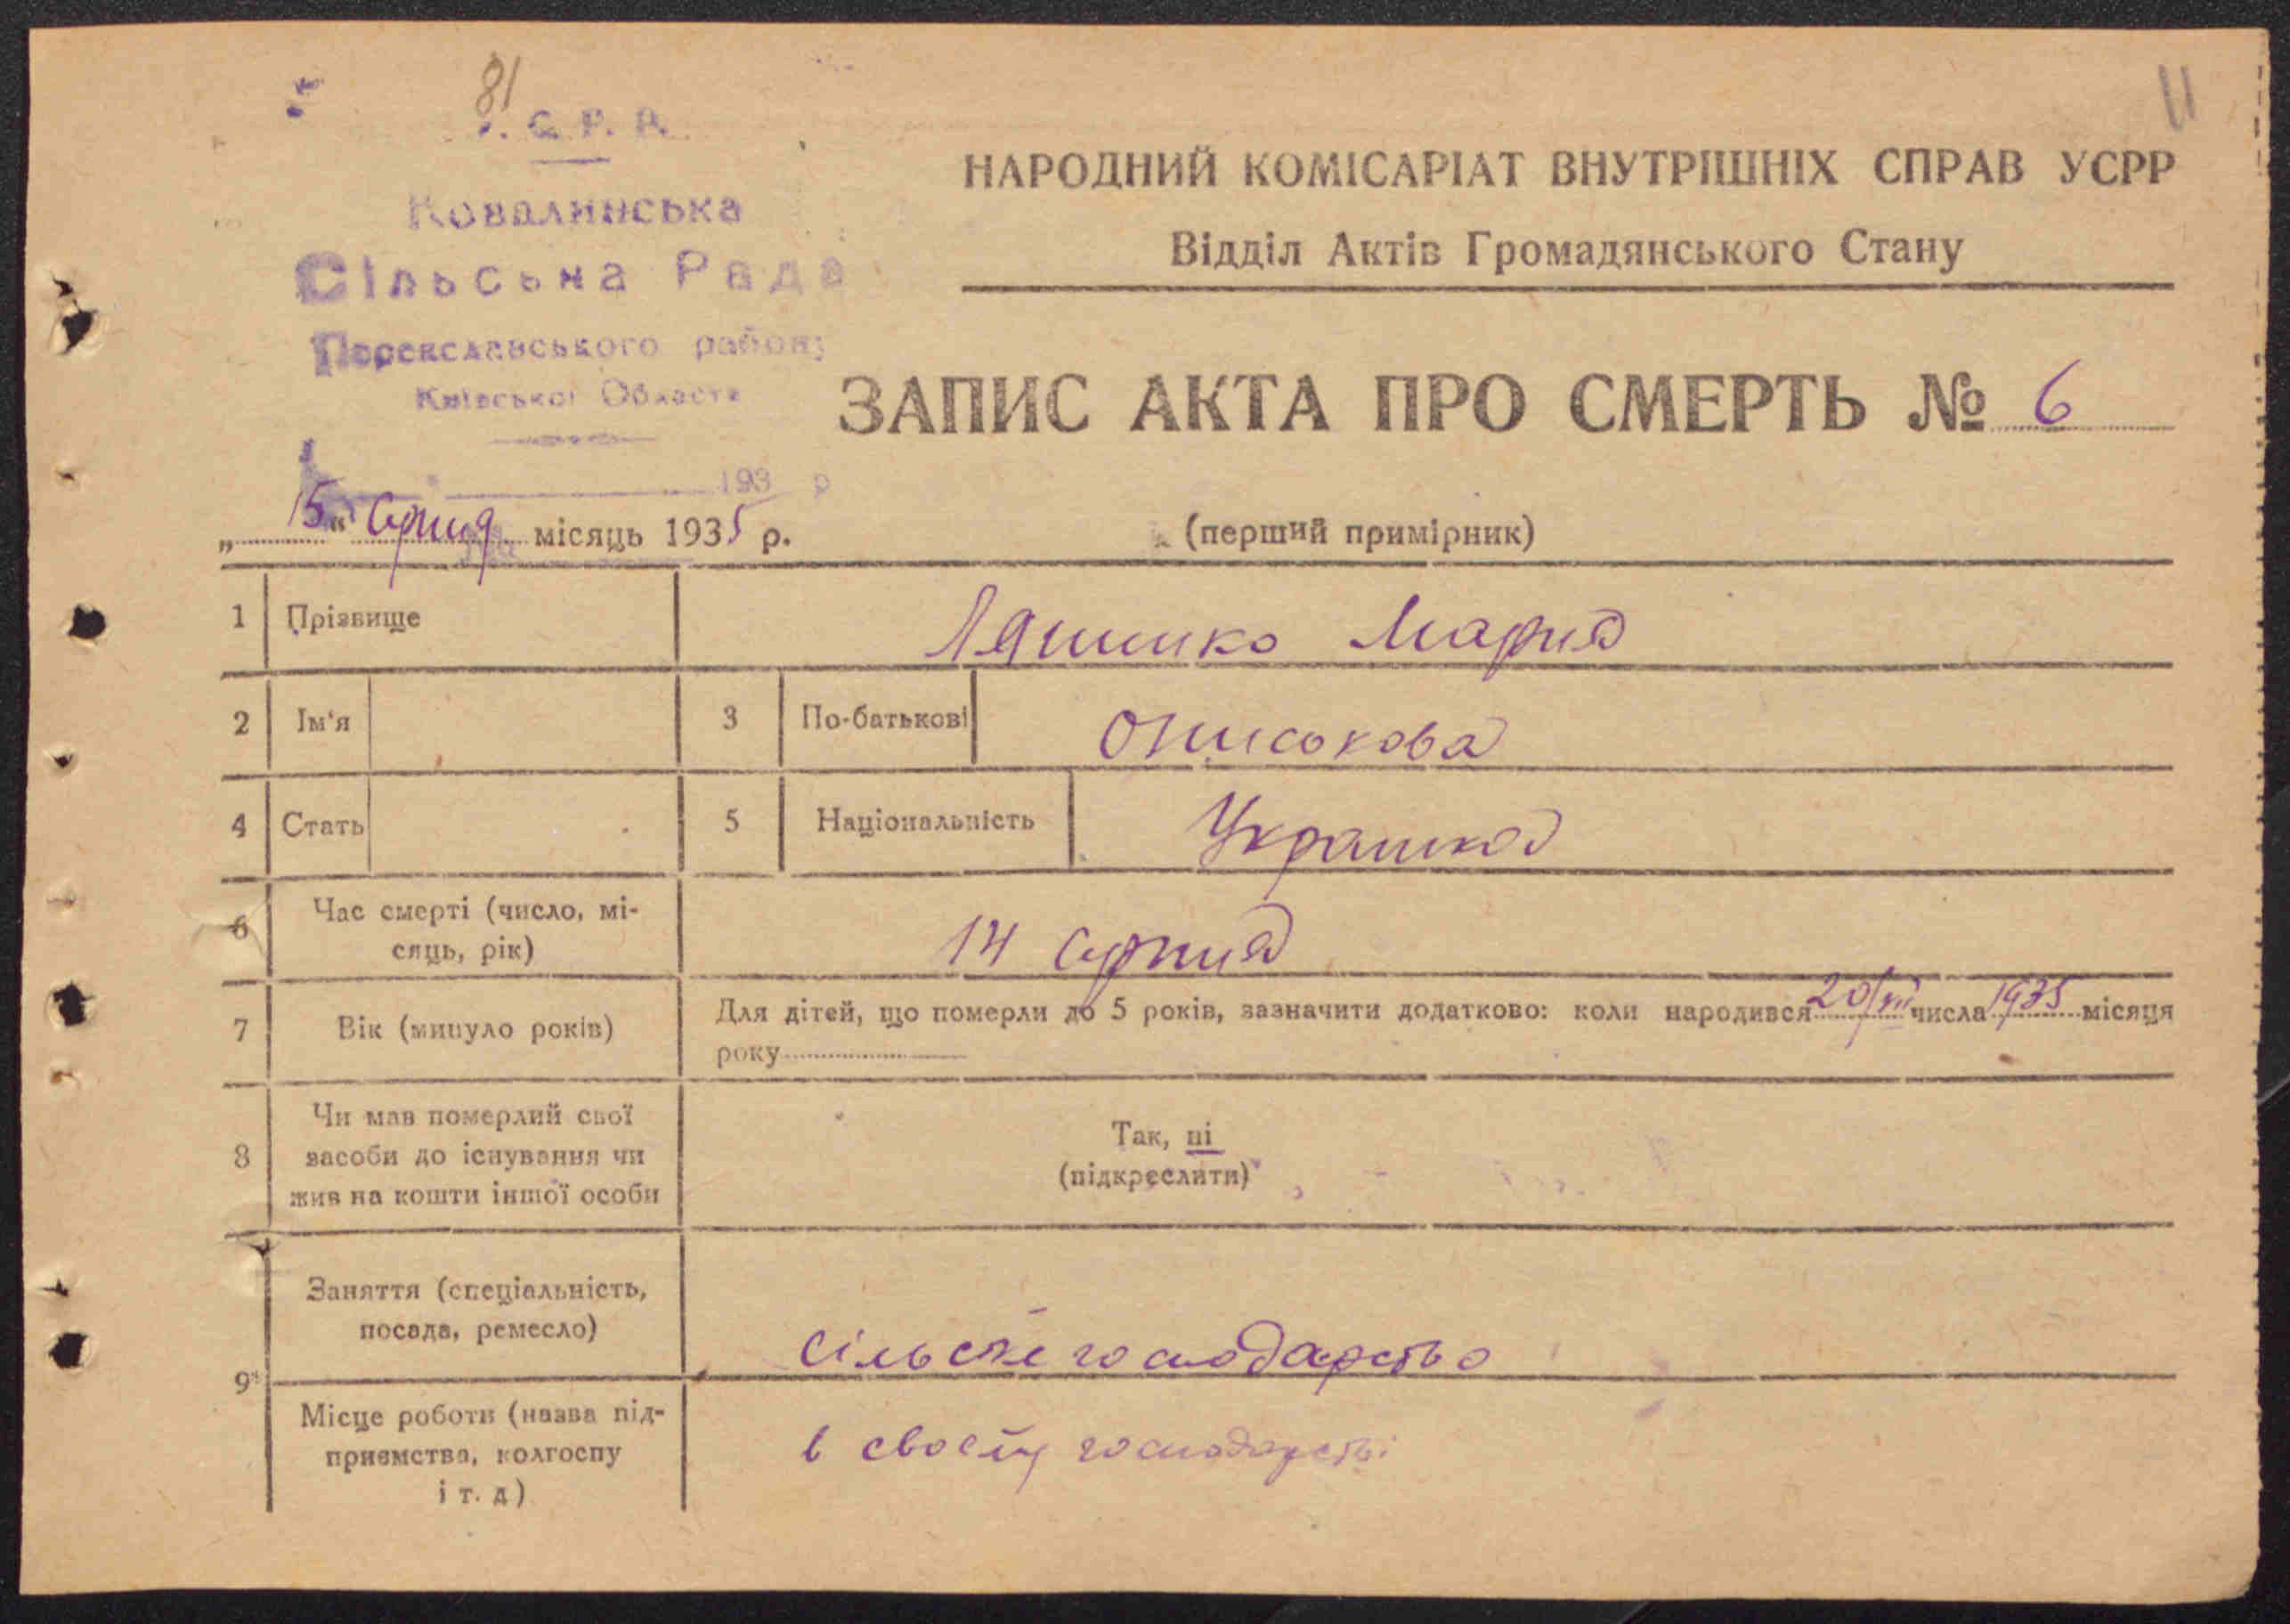 81
11
У. С. Р. Р.
Ковалинська
Сільська Рада
Переяславського району
Київської Області
193 р
НАРОДНИЙ КОМІСАРІАТ ВНУТРІШНІХ СПРАВ УСРР
Відділ Актів Громадянського Стану
ЗАПИС АКТА ПРО СМЕРТЬ № 6
„15“ Серпня місяць 1935 р.
(перший примірник)
1 Прізвище Ляшенко Мария
2 Ім'я 3 По-батькові
4 Стать 5 Національність Украинка
6 Час смерті (число, мі-
сяць, рік) 14 серпня
7 Вік (минуло років) Для дітей, що померли до 5 років, зазначити додатково: коли народився 20/VII числа 1935 місяця
року
8 Чи мав померлий свої
засоби до існування чи
жив на кошти іншої особи
Так, ні
(підкреслити)
9 Заняття (спеціальність,
посада, ремесло) сільське господарство
Місце роботи (назва під-
приємства, колгоспу
і т. д)
в своему господарстві